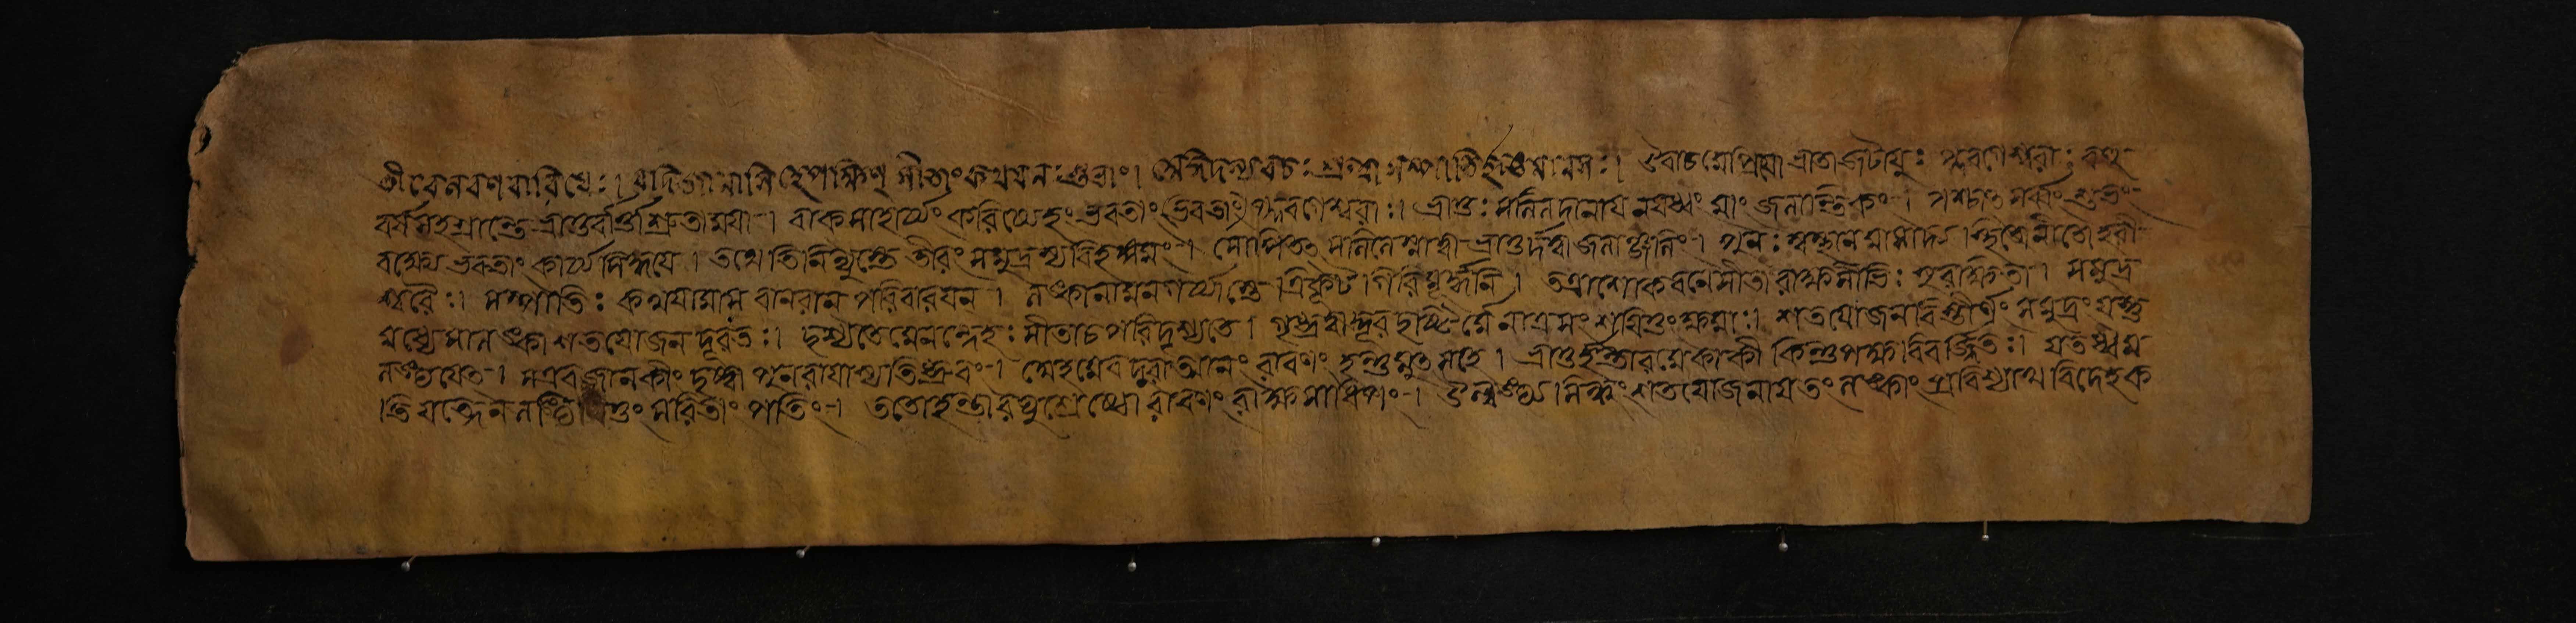 তীরে লবণবারিধেঃ। যদি জানাসি হে পক্ষিণ্ সীতাং কথয় নঃ শুভাং। অঙ্গদস্য বচঃ শ্রুত্বা সম্পাতির্হৃষ্টমানসঃ। উবাচ মে প্রিয়ো ভ্রাতা জটায়ুঃ প্লবগেশ্বরাঃ বহু-
বর্ষসহস্রান্তে ভ্রাতুর্বার্ত্তা শ্রুতা ময়া। বাক্সাহায্যং করিষ্যেহং ভবতাং (ভবতাং) প্লবগেশ্বরাঃ। ভ্রাতুঃ সলিলদানায় নয়ধ্বং মাং জলান্তিকং। পশ্চাৎ সর্ব্বং শুভং
বক্ষ্যে ভবতাং কার্য্যসিদ্ধয়ে। তথেতি নিন্যুস্তে তীরং সমুদ্রস্য বিহঙ্গমং। সোপি তৎ সলিলে স্নাত্বা ভ্রাতুর্দত্বা জলাঞ্জলিং। পুনঃ স্বস্থানমাসাদ্য স্থিতো নীতো হরী-
শ্বরৈঃ। সম্পাতিঃ কথয়ামাস বানরান্ পরিবারয়ন্। লঙ্কানাম নগর্য্যাস্তে ত্রিকূটগিরিমূর্দ্ধনি। তত্রাশোকবনে সীতা রাক্ষসীভিঃ সুরক্ষিতা। সমুদ্র
মধ্যে সা লঙ্কা শতযোজনদূরতঃ। দৃশ্যতে মে ন সন্দেহঃ সীতা চ পরিদৃশ্যতে। গৃধ্রত্বাদ্দূরদৃষ্টির্মে নাত্র সংশয়িতুং ক্ষমাঃ। শতযোজনবিস্তীর্ণং সমুদ্রং যস্তু
লঙ্ঘয়েৎ। স এব জানকীং দৃষ্ট্বা পুনরায়াস্যতি ধ্রুবং। অহমেব দুরাত্মানং রাবণং হন্তুমুৎসহে। ভ্রাতুর্হন্তারমেকাকী কিন্তু পক্ষবিবর্জ্জিতঃ। যতধ্বম-
তিযত্নেন লঙ্ঘিতুং সরিতাং পতিং। ততো হন্তা রঘুশ্রেষ্ঠো রাবণং রাক্ষসাধিপং। উল্লঙ্ঘ্য সিন্ধুং শতযোজনায়তং লঙ্কাং প্রবিশ্যাথ বিদেহক